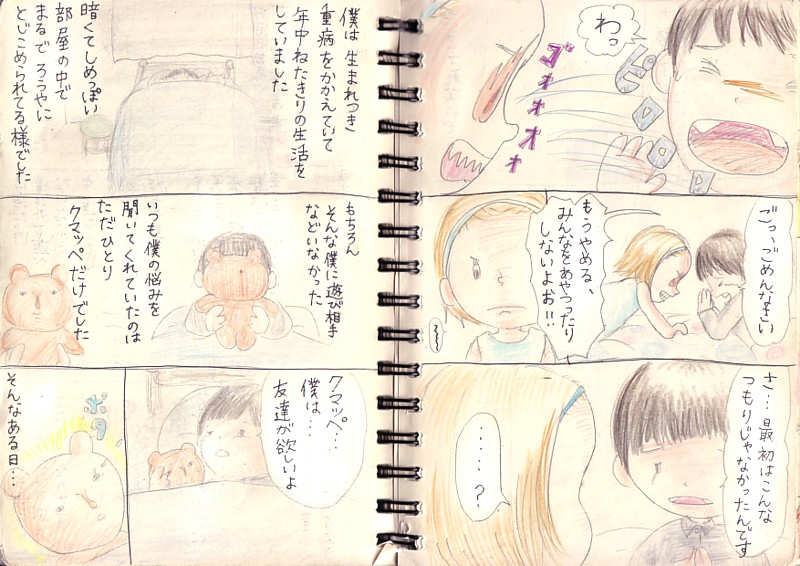 わっ
ピピロロ
ゴォォォォ
ごっ、ごめんなさい
もうやめる、
みんなをあやつったり
しないよお!!
さ…最初はこんな
つもりじゃなかったんです
……?
僕は生まれつき
重病をかかえていて
年中ねたきりの生活を
していました
暗くてしめっぽい
部屋の中で
まるでろうやに
とじこめられてる様でした
もちろん
そんな僕に遊び相手
などいなかった
いつも僕の悩みを
聞いてくれていたのは
ただひとり
クマッペだけでした
クマッペ…
僕は…
友達が欲しいよ
そんなある日…